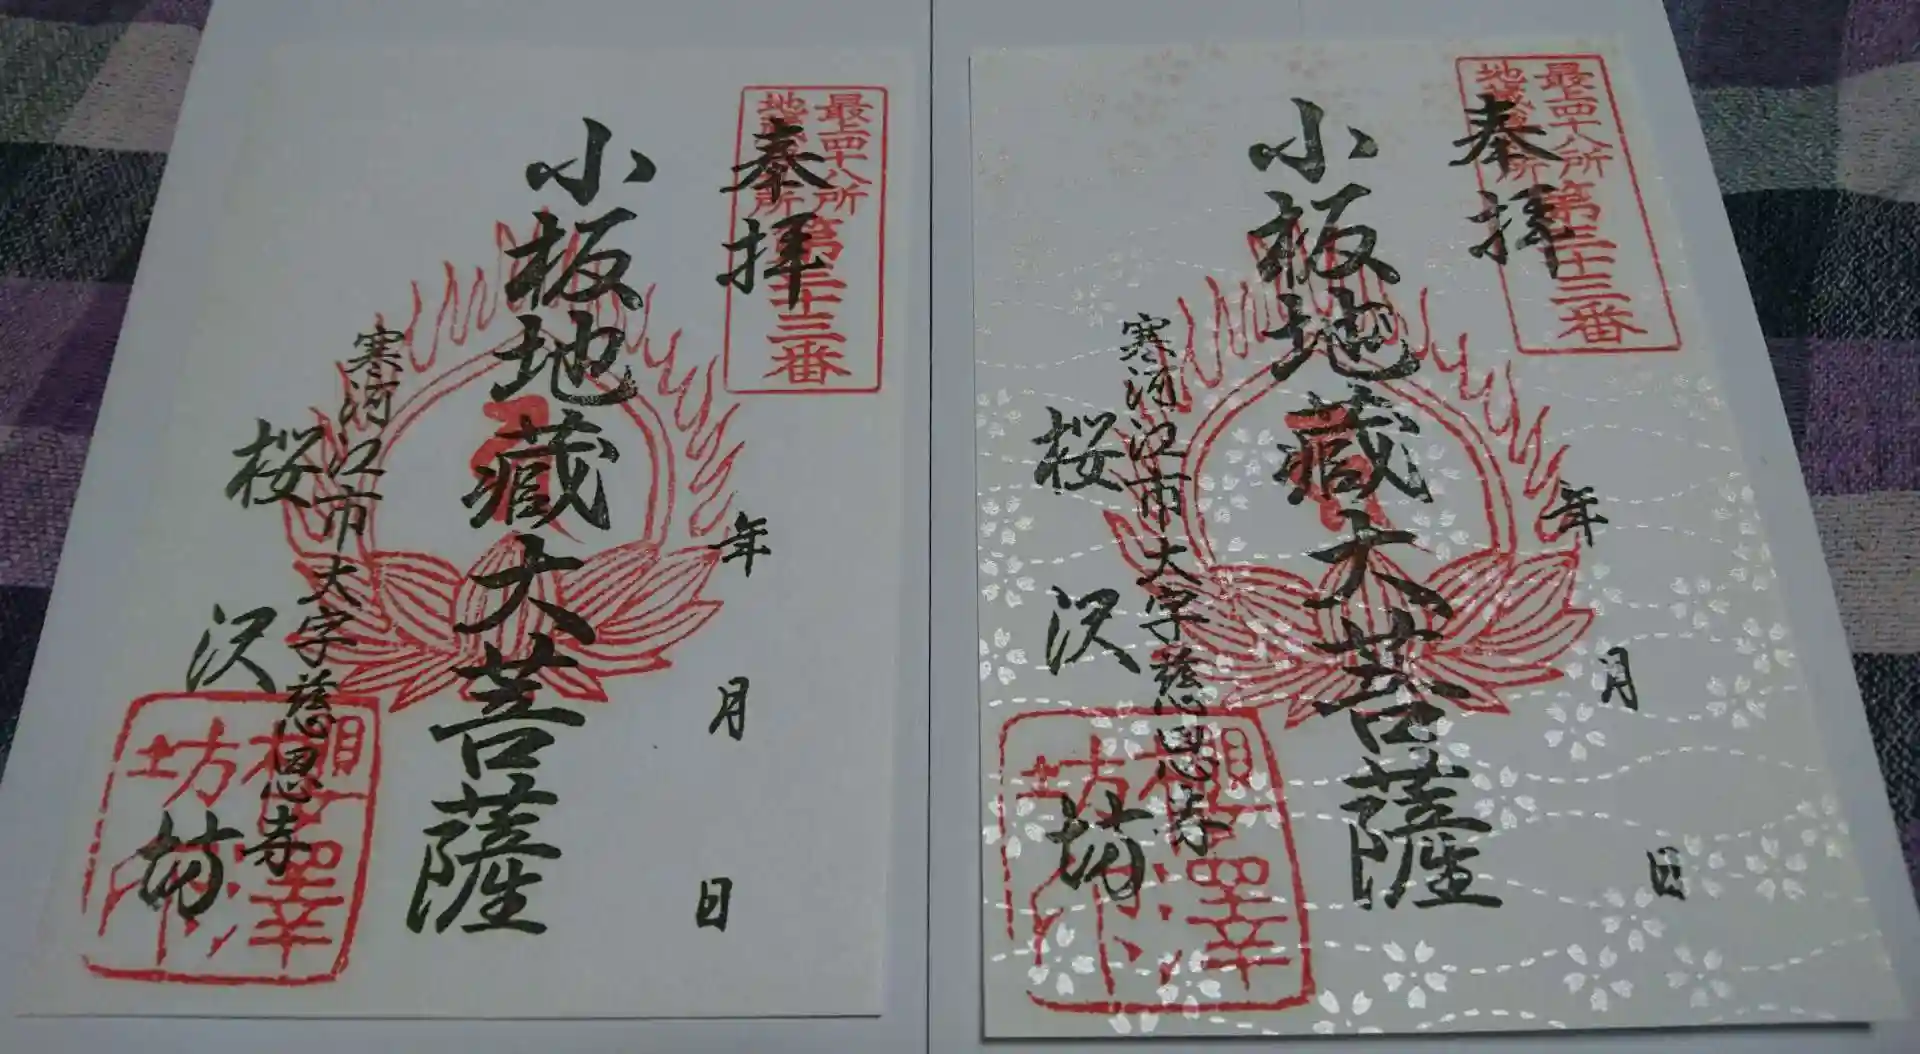 最上四十八所
地蔵尊所 第三十三番
奉拝
小板地蔵大菩薩
年 月 日
寒河江市大字慈恩寺
桜沢坊
櫻澤
坊印
最上四十八所
地蔵尊所 第三十三番
奉拝
小板地蔵大菩薩
年 月 日
寒河江市大字慈恩寺
桜沢坊
櫻澤
坊印